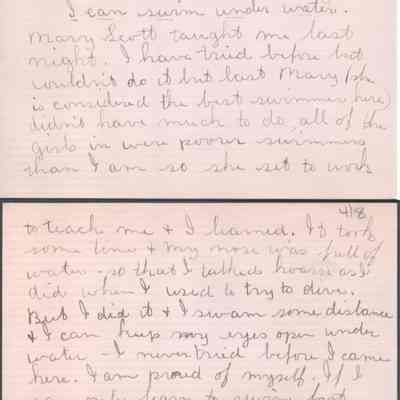 I can swim under water.
Mary Scott taught me last
night. I have tried before but
couldn't do it but last Mary (she
is considered the best swimmer here)
didn't have much to do, all of the
girls in were poorer swimmers
than I am so she set to work
4/8
to teach me & I learned. It took
some time & my nose was full of
water - so that I talked hoarse as I
did when I used to try to dive.
But I did it & I swam some distance
& I can keep my eyes open under
water - I never tried before I came
here. I am proud of myself. If I
can only learn to swim fast